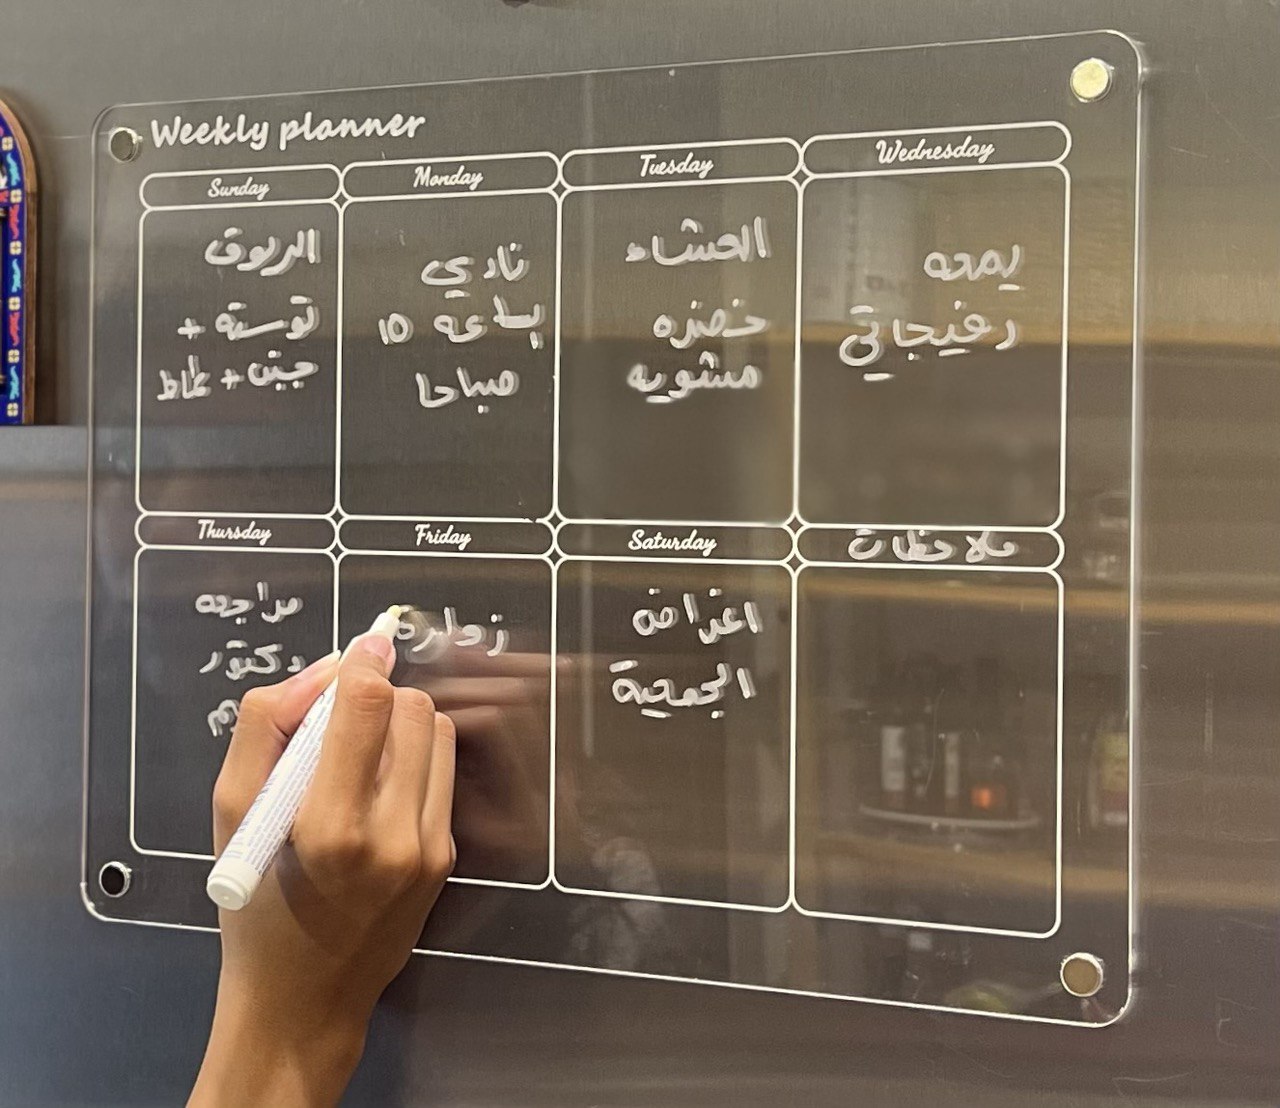 Weekly planner
Sunday
الريوق
توستة +
جبن + طماط
Monday
نادي
بساعه 10
صباحا
Tuesday
العشاء
خضره
مشويه
Wednesday
يمعه
رفيجاتي
Thursday
مراجعه
دكتور
Friday
زواره
Saturday
اغراض
الجمعية
ملاحظات